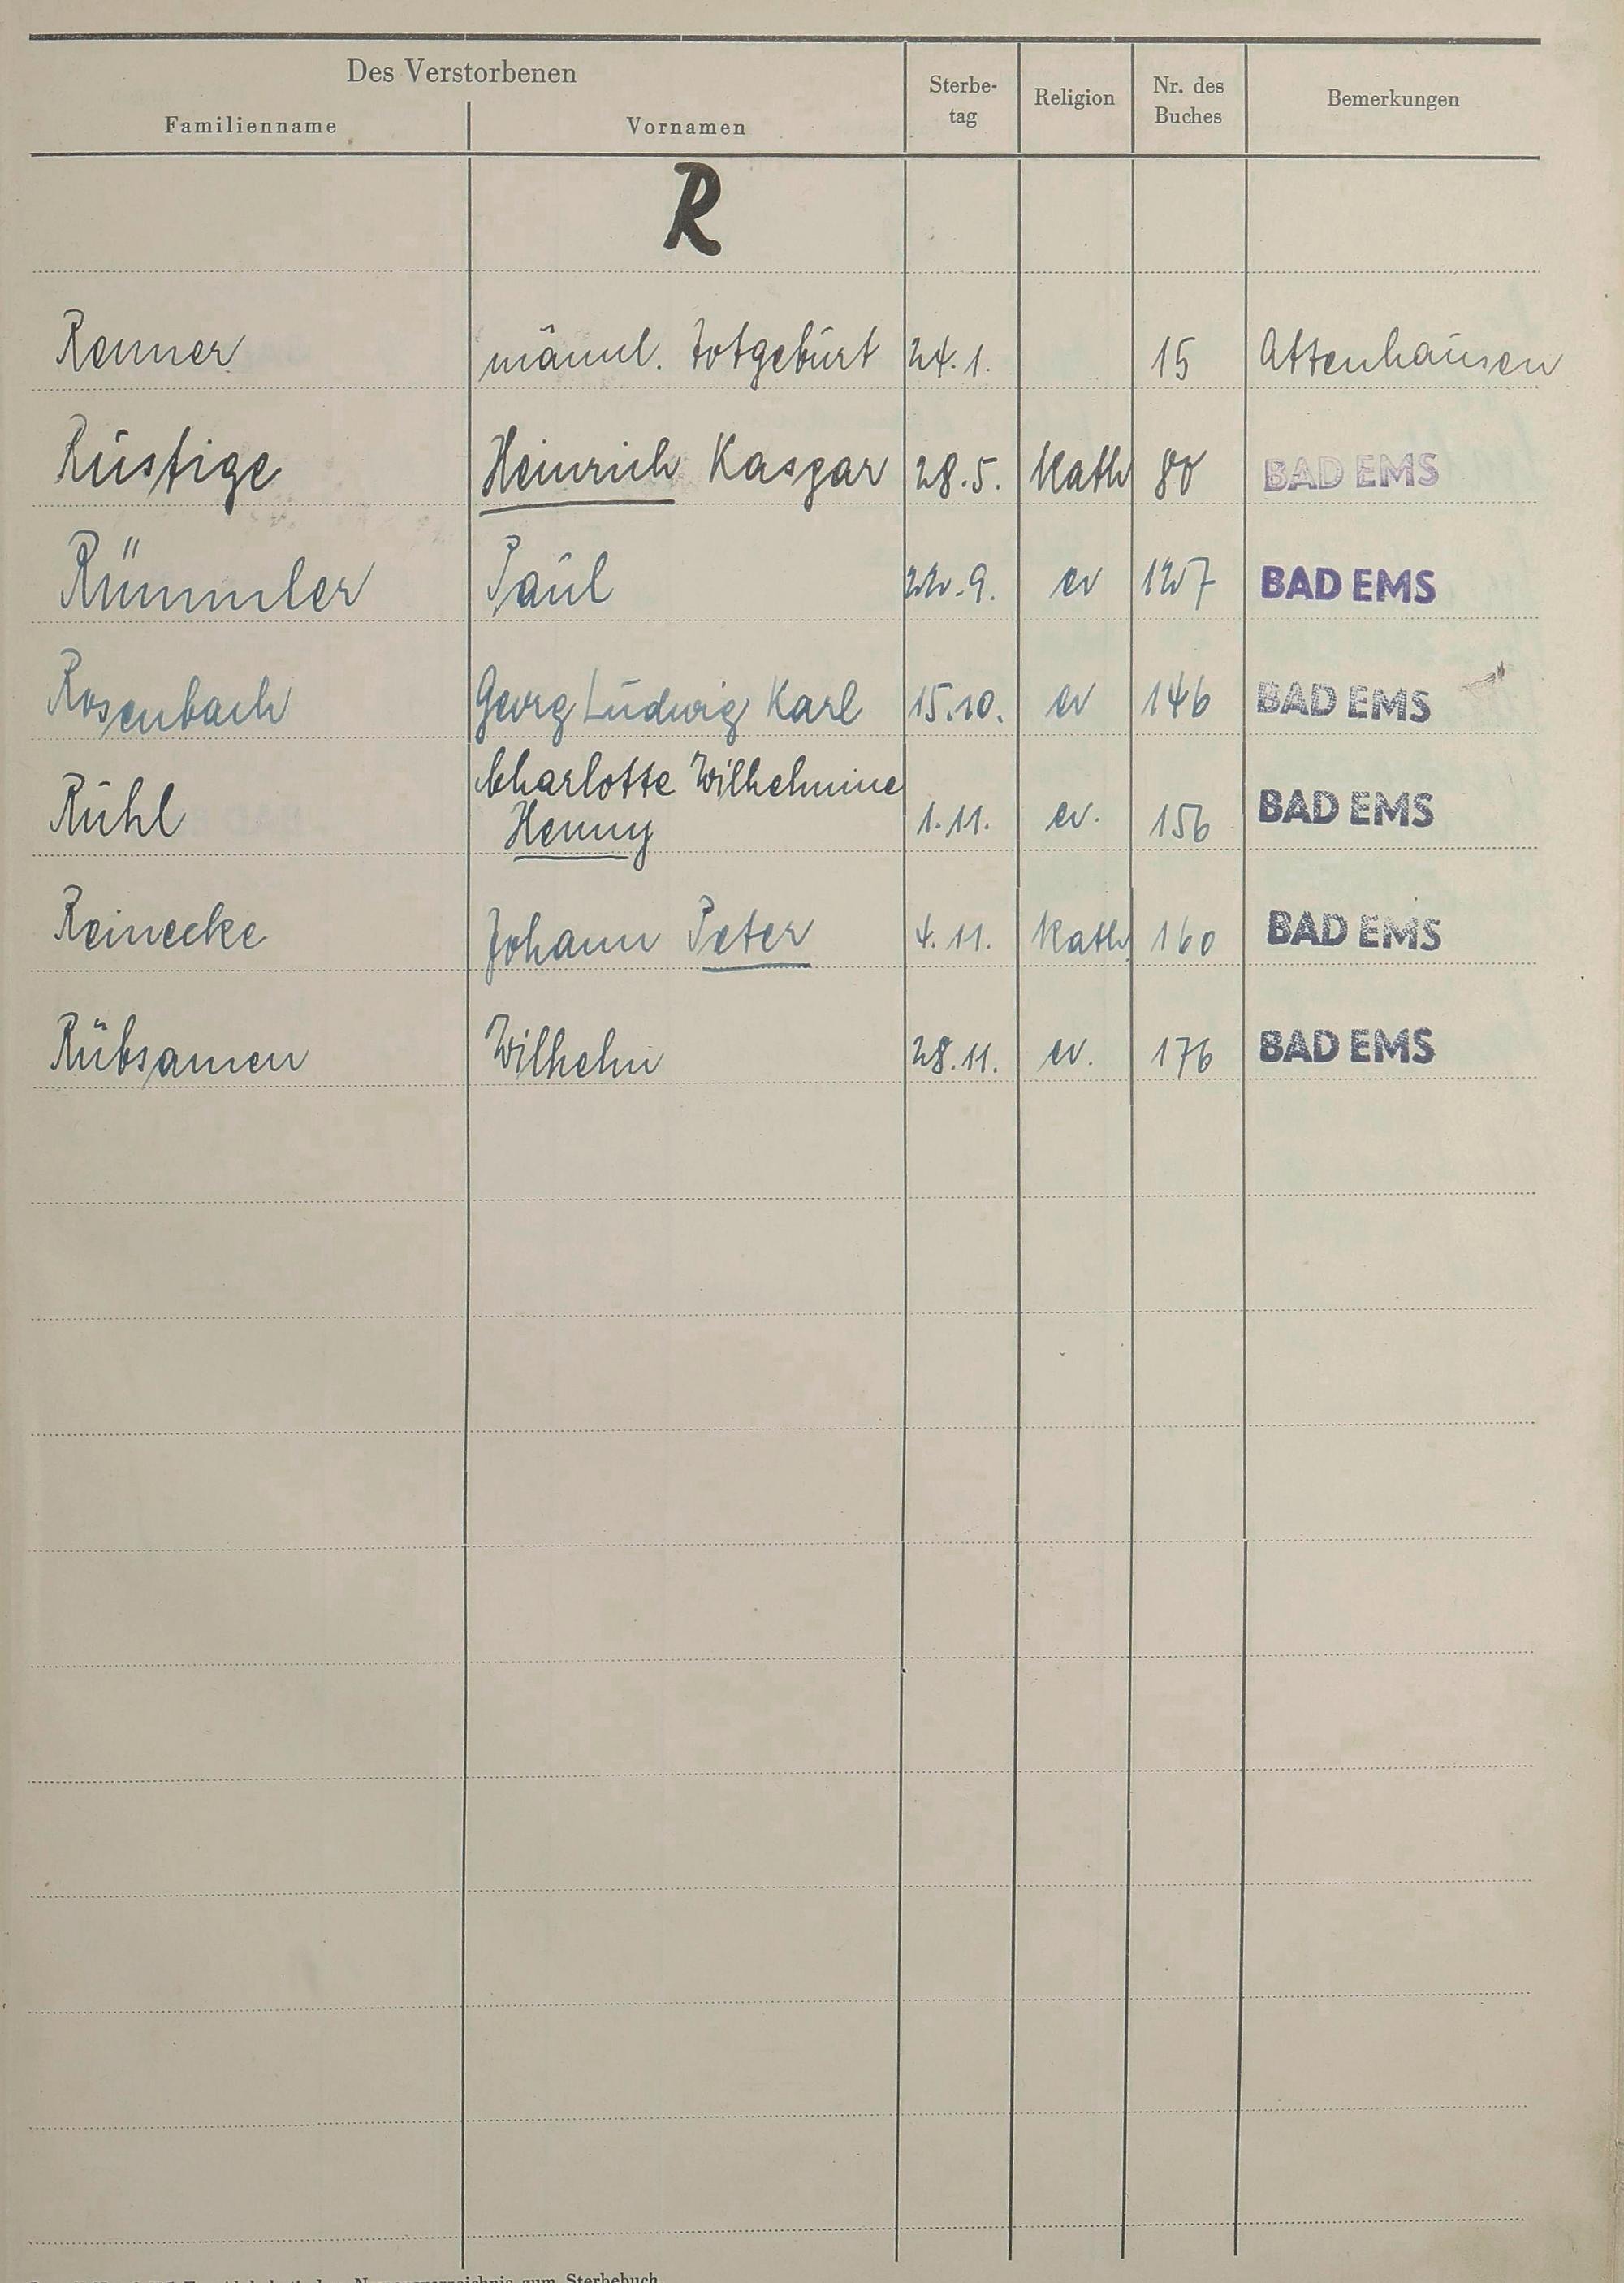 Des Verstorbenen
Familienname Vornamen Sterbe-tag Religion Nr. des Buches Bemerkungen
R
Renner männl. Totgeburt 24.1. 15 Attenhausen
Rustige Heinrich Kaspar 28.5. Kath 80 BAD EMS
Rümmler Paul 22.9. ev 127 BAD EMS
Rosenbach Georg Ludwig Karl 15.10. ev 146 BAD EMS
Charlotte Wilhelmine
Rühl Henny 1.11. ev. 156 BAD EMS
Reinecke Johann Peter 4.11. Kath 160 BAD EMS
Rübsamen Wilhelm 28.11. ev. 176 BAD EMS
zum Sterbebuch